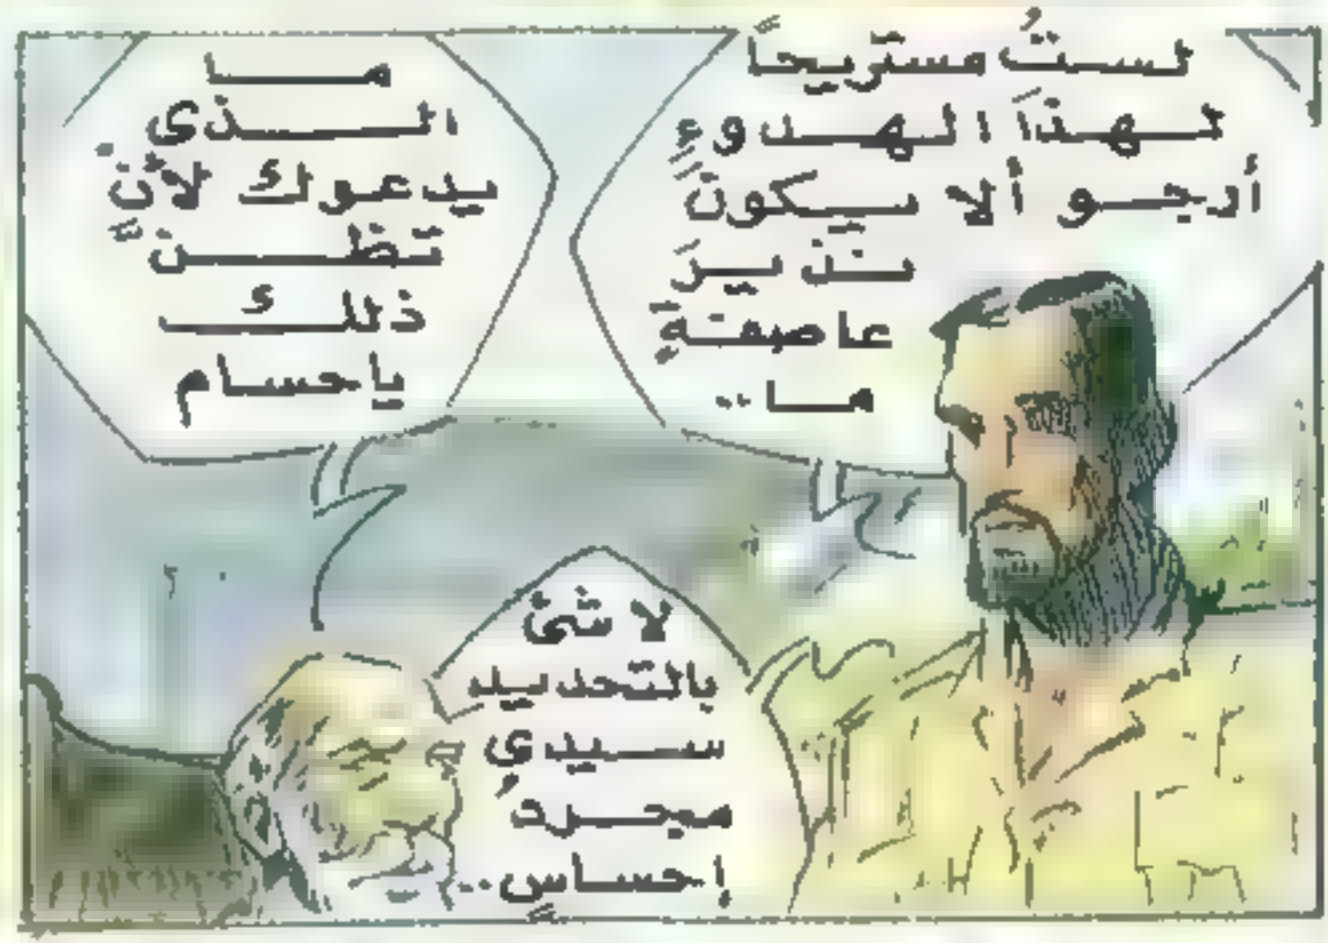 لستُ مستريحاً
لهذَا الهدوءِ
أرجو ألا سيكونَ
نذيرَ
عاصفةٍ
ما..
ما
الذى
يدعوك لأنْ
تظنَّ
ذلك
ياحسام
لا شئ
بالتحديد
سيدى
مجردُ
إحساسٍ..